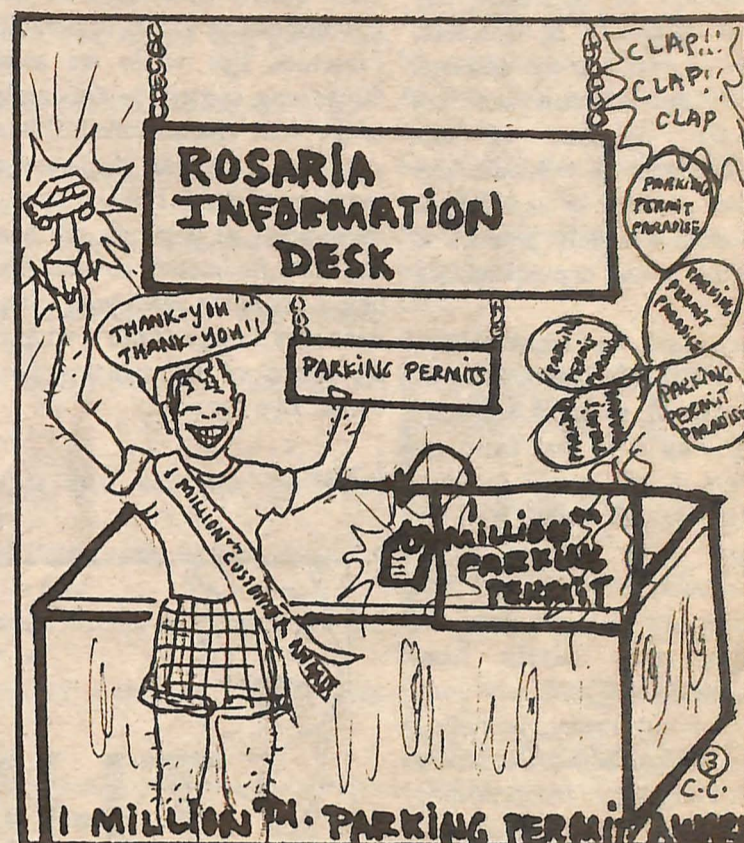 CLAP!!
CLAP!!
CLAP
ROSARIA
INFORMATION
DESK
PARKING
PERMIT
PARADISE
PARKING
PERMIT
PARADISE
THANK-YOU!!
THANK-YOU!!
PARKING PERMITS
PARKING
PERMIT
PARADISE
PARKING
PERMIT
PARADISE
PARKING
PERMIT
PARADISE
1 MILLIONTH CUSTOMER AWARD
MILLIONTH
PARKING
PERMIT
3
C.C.
1 MILLIONTH. PARKING PERMIT AWAR